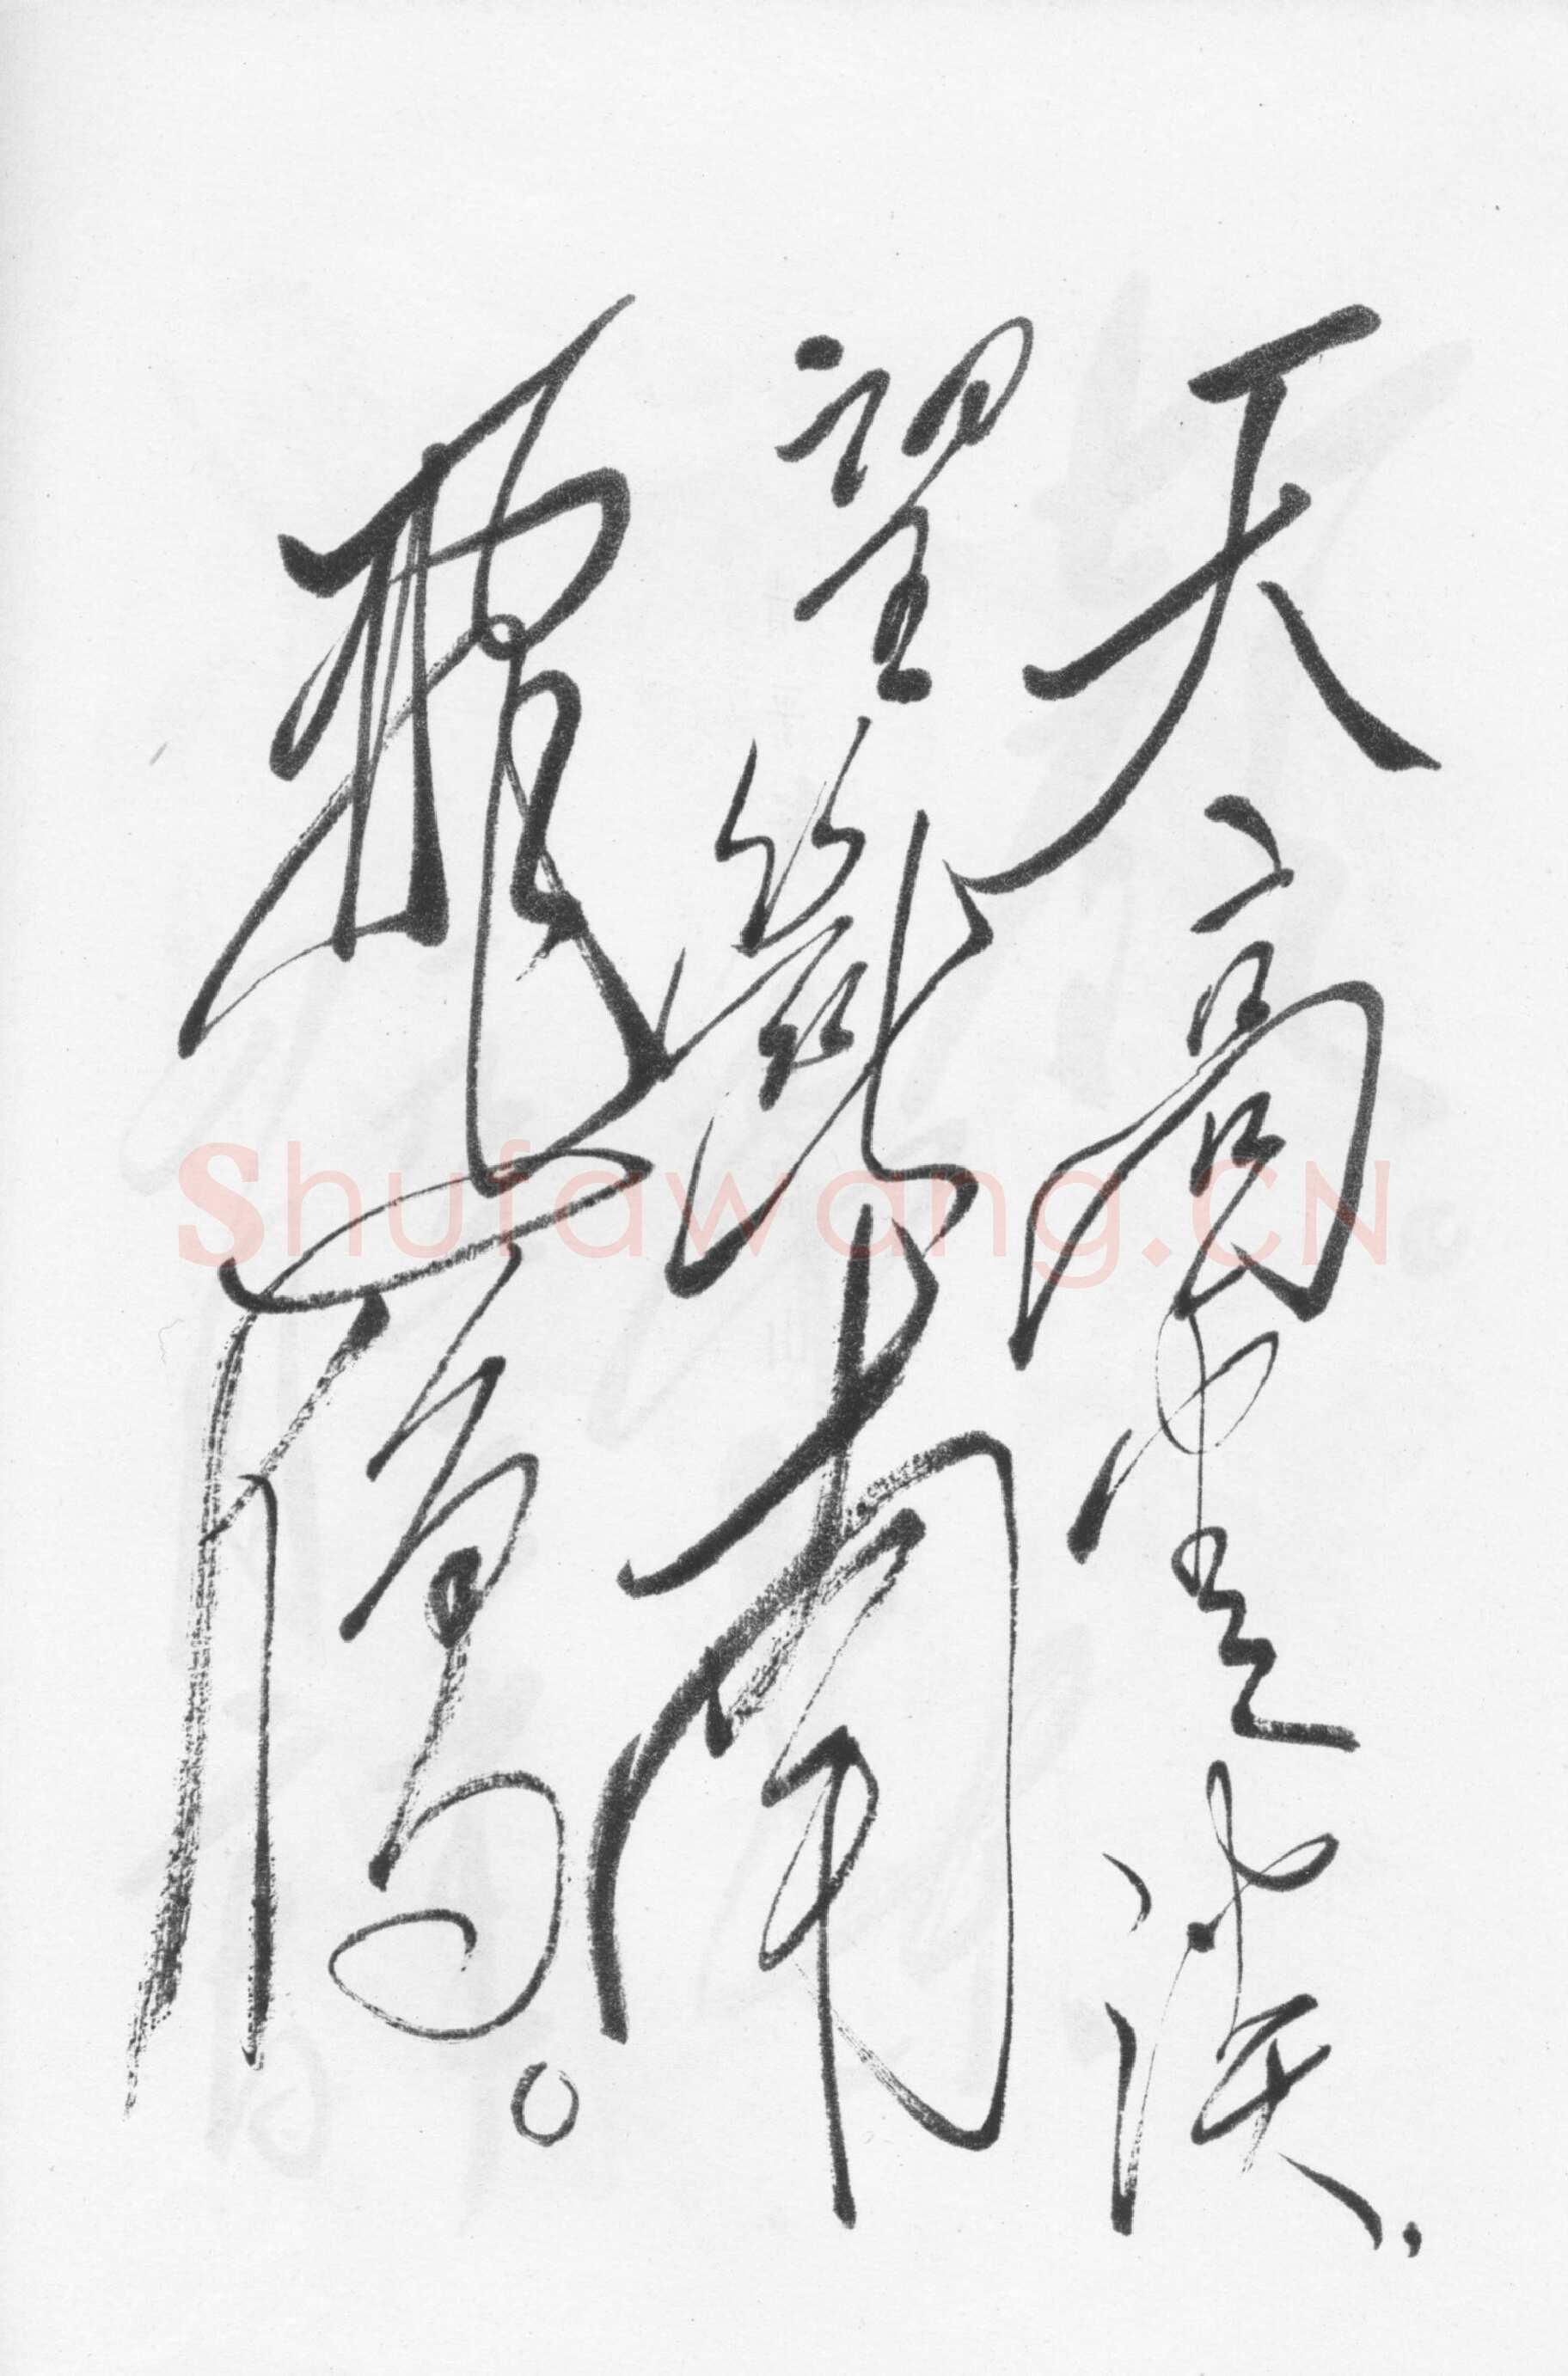 天高雲淡，
望斷南
飛雁。
Shufawang.CN